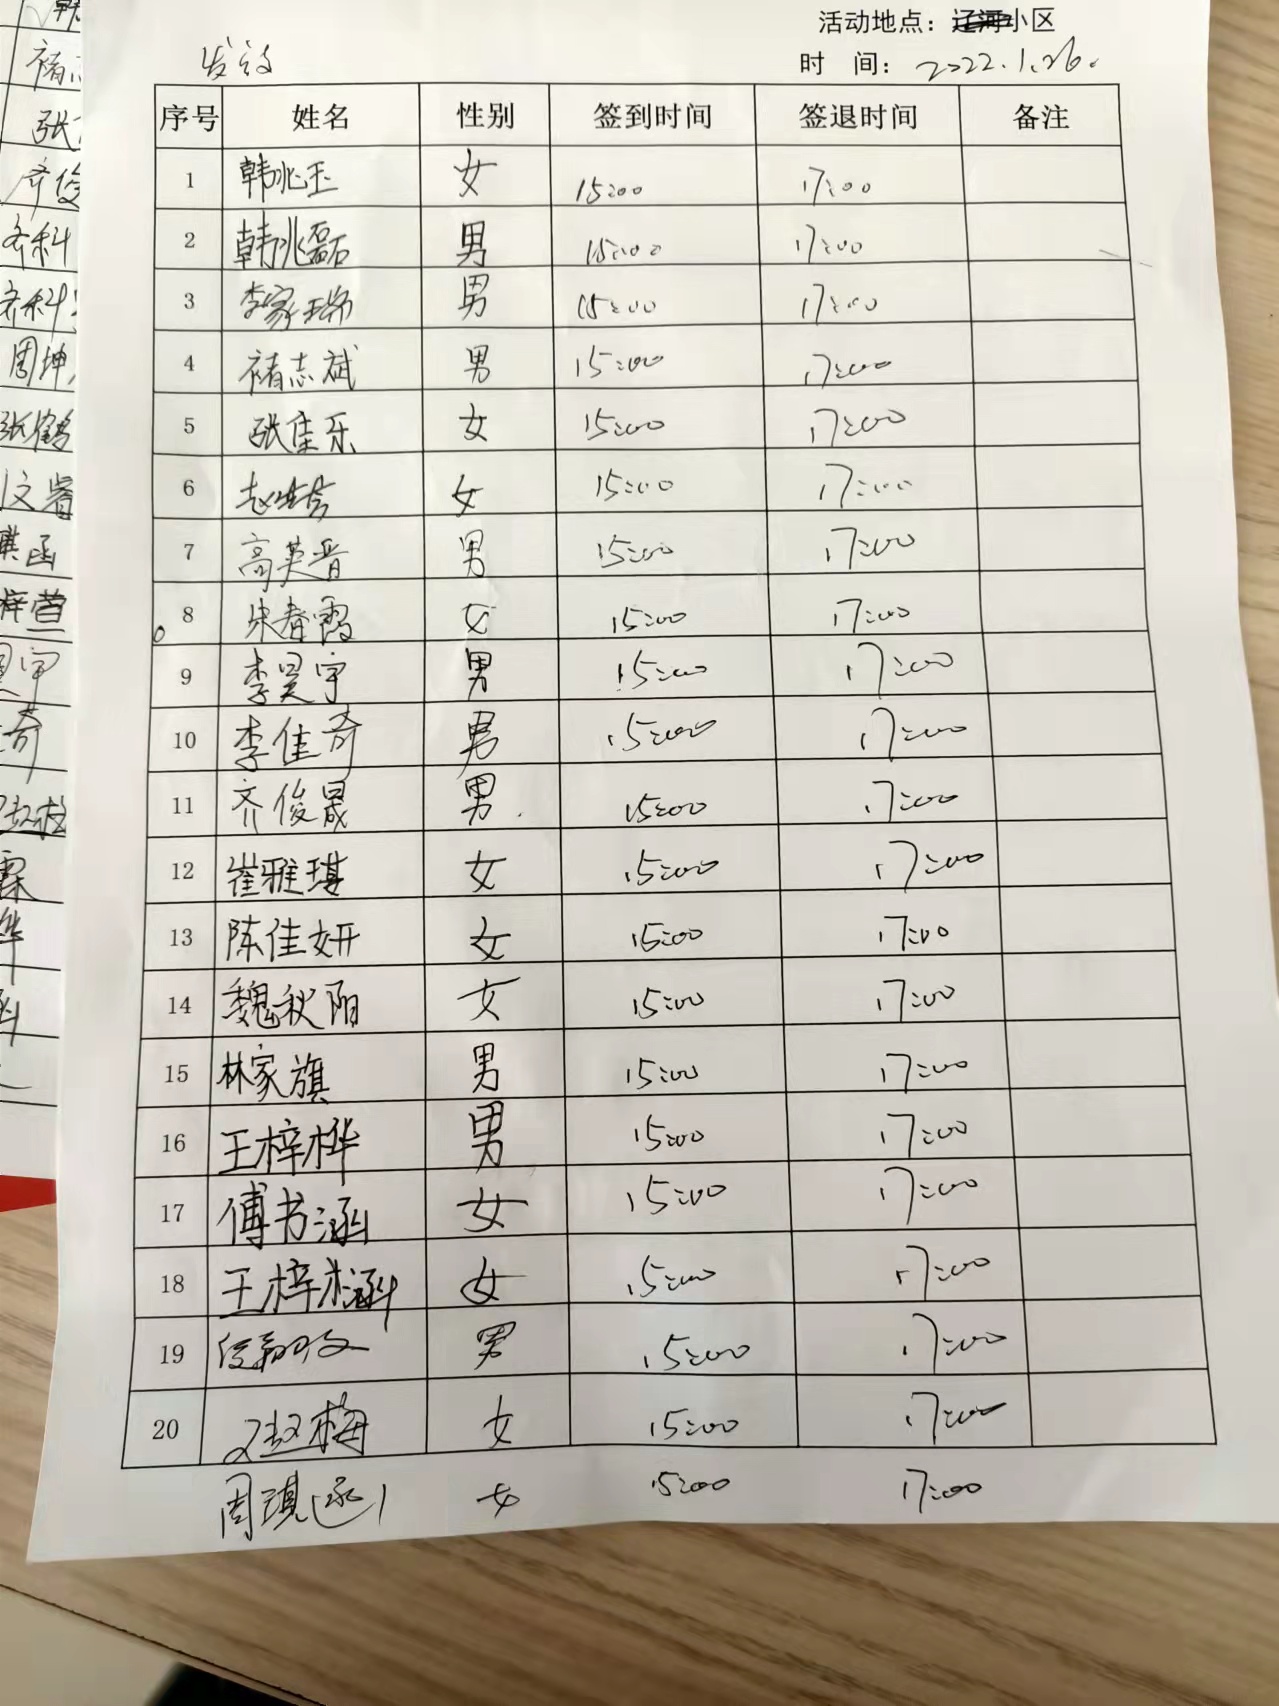 活动地点：辽河小区
时 间：2022.1.26.
序号 姓名 性别 签到时间 签退时间 备注
1 韩兆玉 女 15:00 17:00
2 韩兆磊 男 15:00 17:00
3 李家瑞 男 15:00 17:00
4 褚志斌 男 15:00 17:00
5 张佳乐 女 15:00 17:00
6 女 15:00 17:00
7 高英晋 男 15:00 17:00
8 朱春霞 女 15:00 17:00
9 李昊宇 男 15:00 17:00
10 李佳奇 男 15:00 17:00
11 齐俊晟 男 15:00 17:00
12 崔雅琪 女 15:00 17:00
13 陈佳妍 女 15:00 17:00
14 魏秋阳 女 15:00 17:00
15 林家旗 男 15:00 17:00
16 王梓桦 男 15:00 17:00
17 傅书涵 女 15:00 17:00
18 王梓涵 女 15:00 17:00
19 男 15:00 17:00
20 赵梅 女 15:00 17:00
周琪(函) 女 15:00 17:00